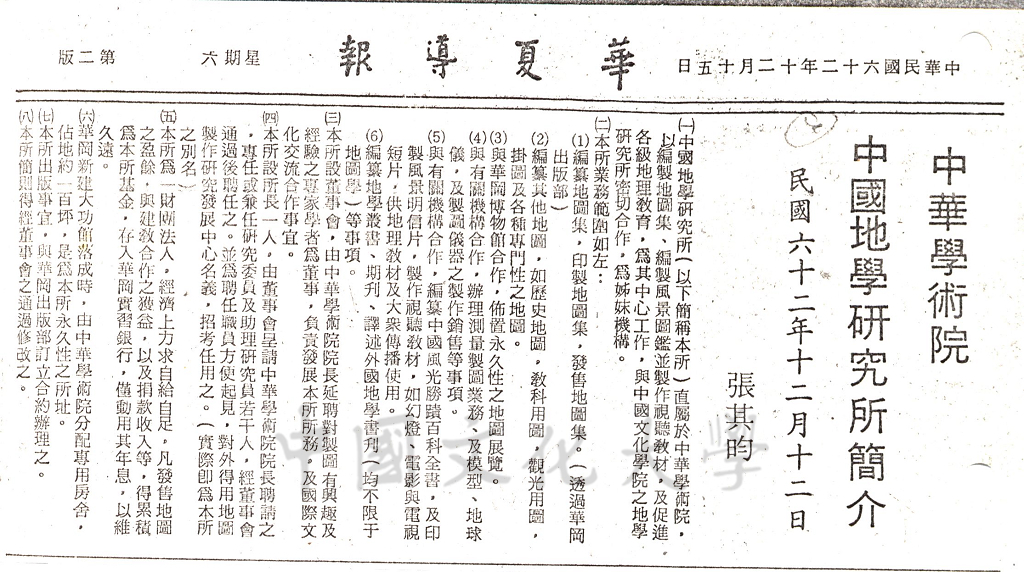 中華民國六十二年十二月十五日
華夏導報
星期六
第二版
中華學術院
中國地學研究所簡介
民國六十二年十二月十二日
張其昀
㈠中國地學研究所(以下簡稱本所)直屬於中華學術院,
以編製地圖集、編製風景圖鑑並製作視聽教材,及促進
各級地理教育,爲其中心工作,與中國文化學院之地學
研究所密切合作,爲姊妹機構。
㈡本所業務範圍如左:
(1)編纂地圖集,印製地圖集,發售地圖集。(透過華岡
出版部)
(2)編纂其他地圖,如歷史地圖,教科用圖,觀光用圖,
掛圖及各種專門性之地圖。
(3)與華岡博物館合作,佈置永久性之地圖展覽。
(4)與有關機構合作,辦理測量製圖業務、及模型、地球
儀,及製圖儀器之製作銷售等事項。
(5)與有關機構合作,編纂中國風光勝蹟百科全書,及印
製風景明信片,製作視聽教材,如幻燈、電影與電視
短片,供地理教材及大衆傳播使用。
(6)編纂地學叢書、期刋、譯述外國地學書刋(均不限于
地圖學)等事項。
㈢本所設董事會,由中華學術院院長延聘對製圖有興趣及
經驗之專家學者爲董事,負責發展本所所務,及國際文
化交流合作事宜。
㈣本所設所長一人,由董事會呈請中華學術院院長聘請之
,專任或兼任研究委員及助理研究員若干人,經董事會
通過後聘任之。並爲聘任職員方便起見,對外得用地圖
製作研究發展中心名義,招考任用之。(實際卽爲本所
之別名)
㈤本所爲一財團法人,經濟上力求自給自足,凡發售地圖
之盈餘,與建教合作之獲益,以及捐款收入等,得累積
爲本所基金,存入華岡實習銀行,僅動用其年息,以維
久遠。
㈥華岡新建大功館落成時,由中華學術院分配專用房舍,
佔地約一百坪,是爲本所永久性之所址。
㈦本所出版事宜,與華岡出版部訂立合約辦理之。
㈧本所簡則得經董事會之通過修改之。
中國文化大學